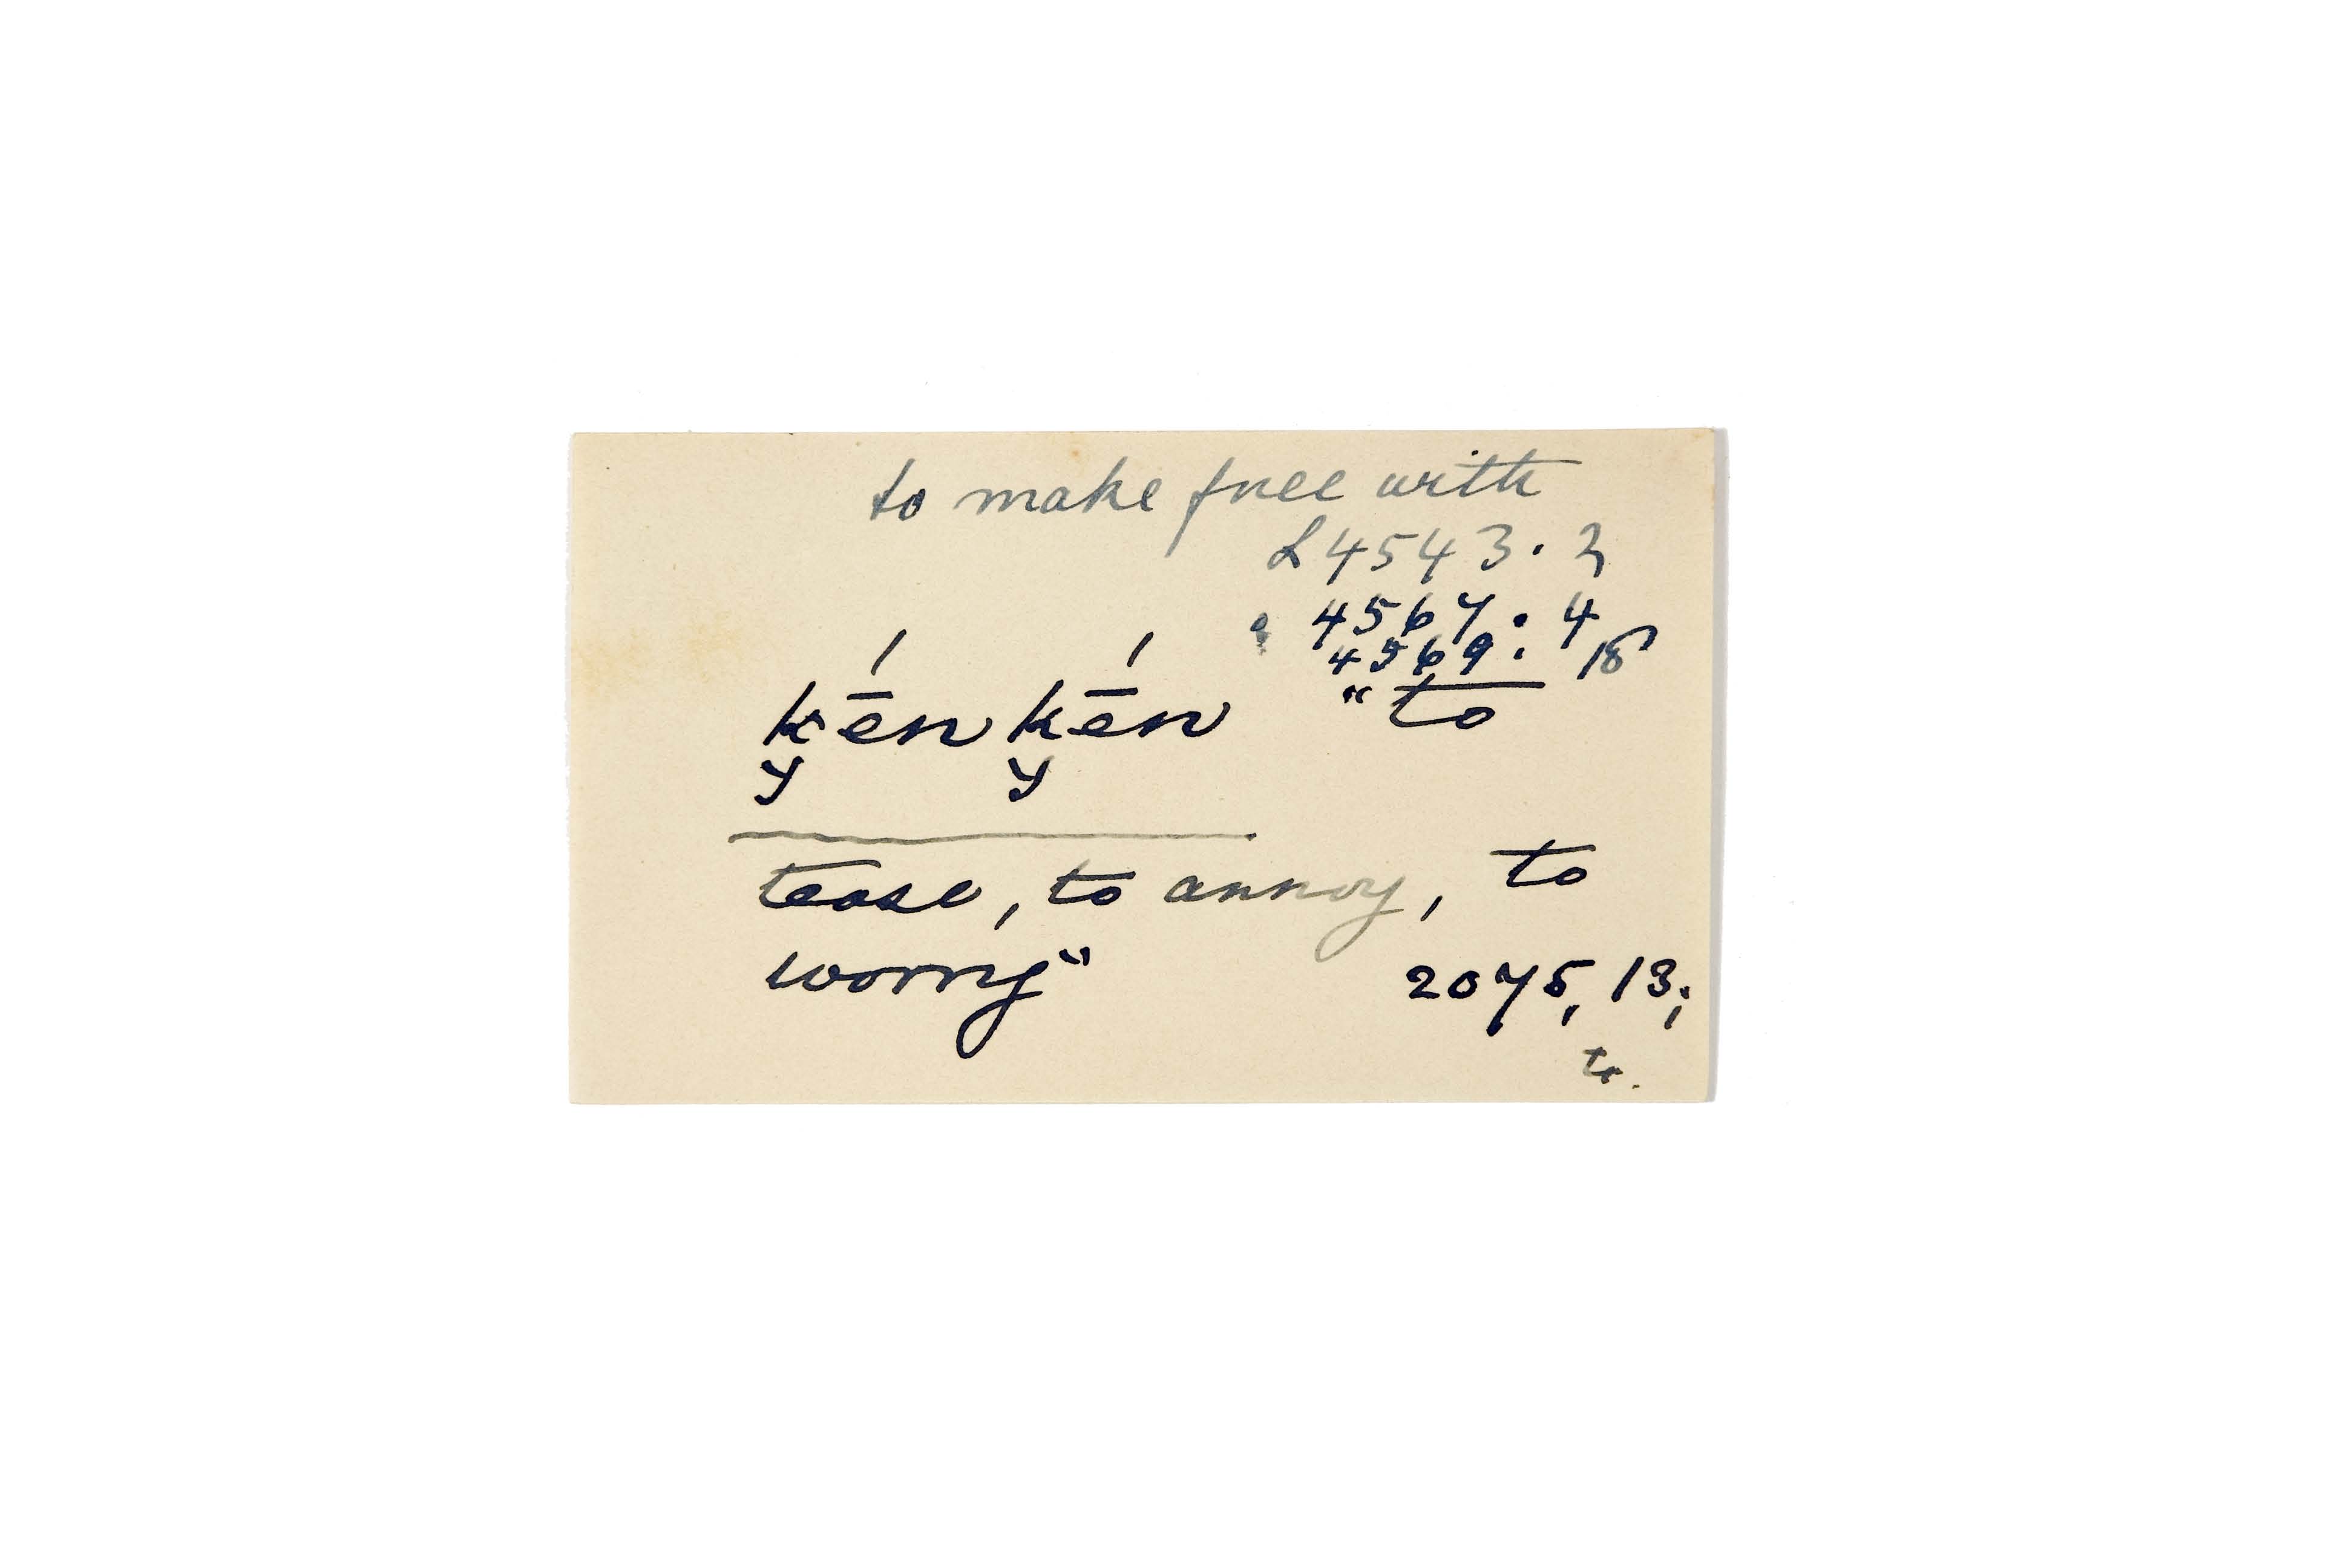 to make free with
L 4543. 2
4567: 4
4569: 18
kḗn kḗn "to
y y
tease, to annoy, to
worry"
2075, 13;